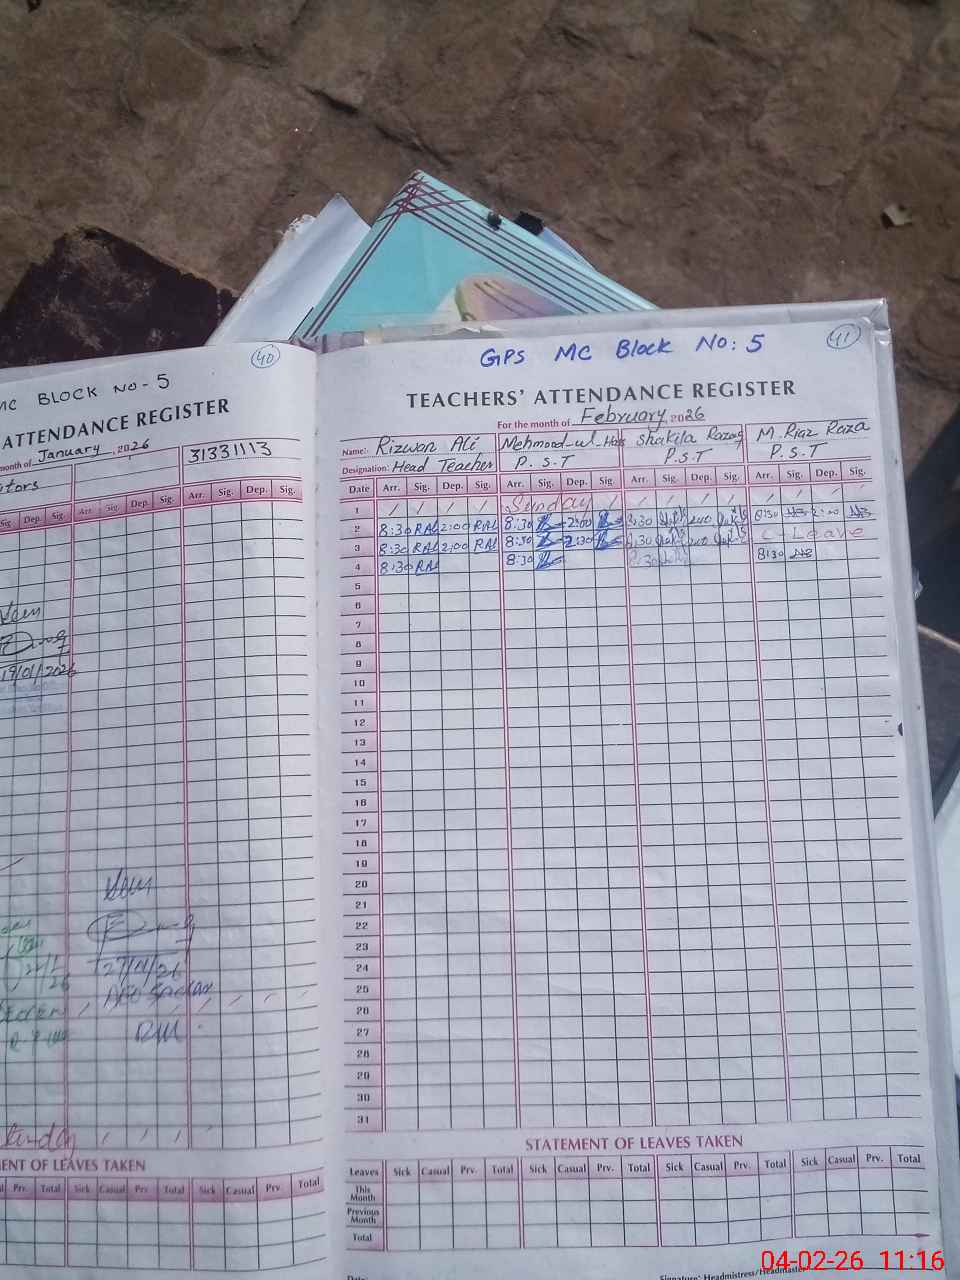 40
MC BLOCK NO-5
ATTENDANCE REGISTER
month of January, 2026
31331113
Sig Dep. Sig. Arr. Sig. Dep. Sig. Arr. Sig. Dep. Sig.
19/01/2026
27/01/26
Sunday
STATEMENT OF LEAVES TAKEN
Prv. Total Sick Casual Prv. Total Sick Casual Prv. Total
41
GPS MC Block No: 5
TEACHERS' ATTENDANCE REGISTER
For the month of February 2026
Name:- Rizwan Ali Mehmood-ul-Has Shakila Razaq M. Riaz Raza
Designation: Head Teacher P.S.T P.S.T P.S.T
Date Arr. Sig. Dep. Sig. Arr. Sig. Dep. Sig. Arr. Sig. Dep. Sig. Arr. Sig. Dep. Sig.
1 Sunday
2 8:30 RAL 2:00 RAL 8:30 2:00 8:30 2:00 8:30 2:00
3 8:30 RAL 2:00 RAL 8:30 2:30 8:30 2:00 C-Leave
4 8:30 RAL 8:30 8:30 8:30
5
6
7
8
9
10
11
12
13
14
15
16
17
18
19
20
21
22
23
24
25
26
27
28
29
30
31
STATEMENT OF LEAVES TAKEN
Leaves Sick Casual Prv. Total Sick Casual Prv. Total Sick Casual Prv. Total Sick Casual Prv. Total
This Month
Previous Month
Total
Date:
Signature: Headmistress/Headmaster
04-02-26 11:16